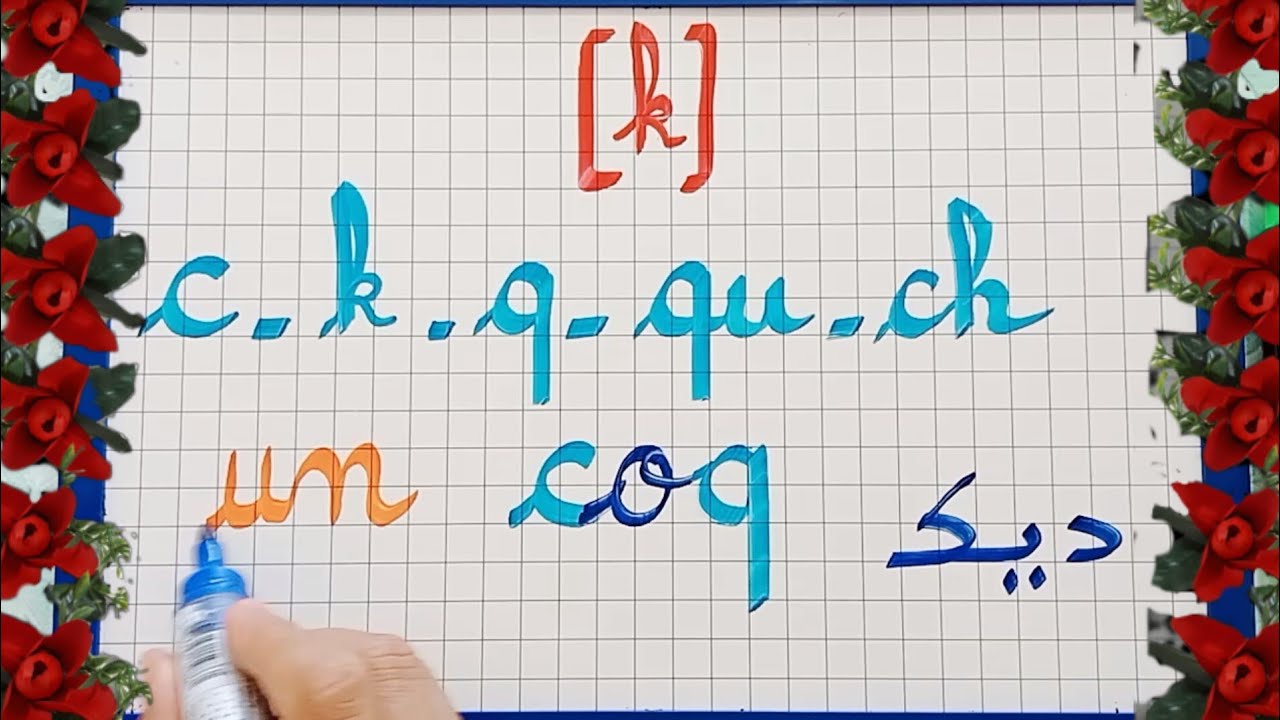 [k]
c. k. q. qu. ch
un coq ديك